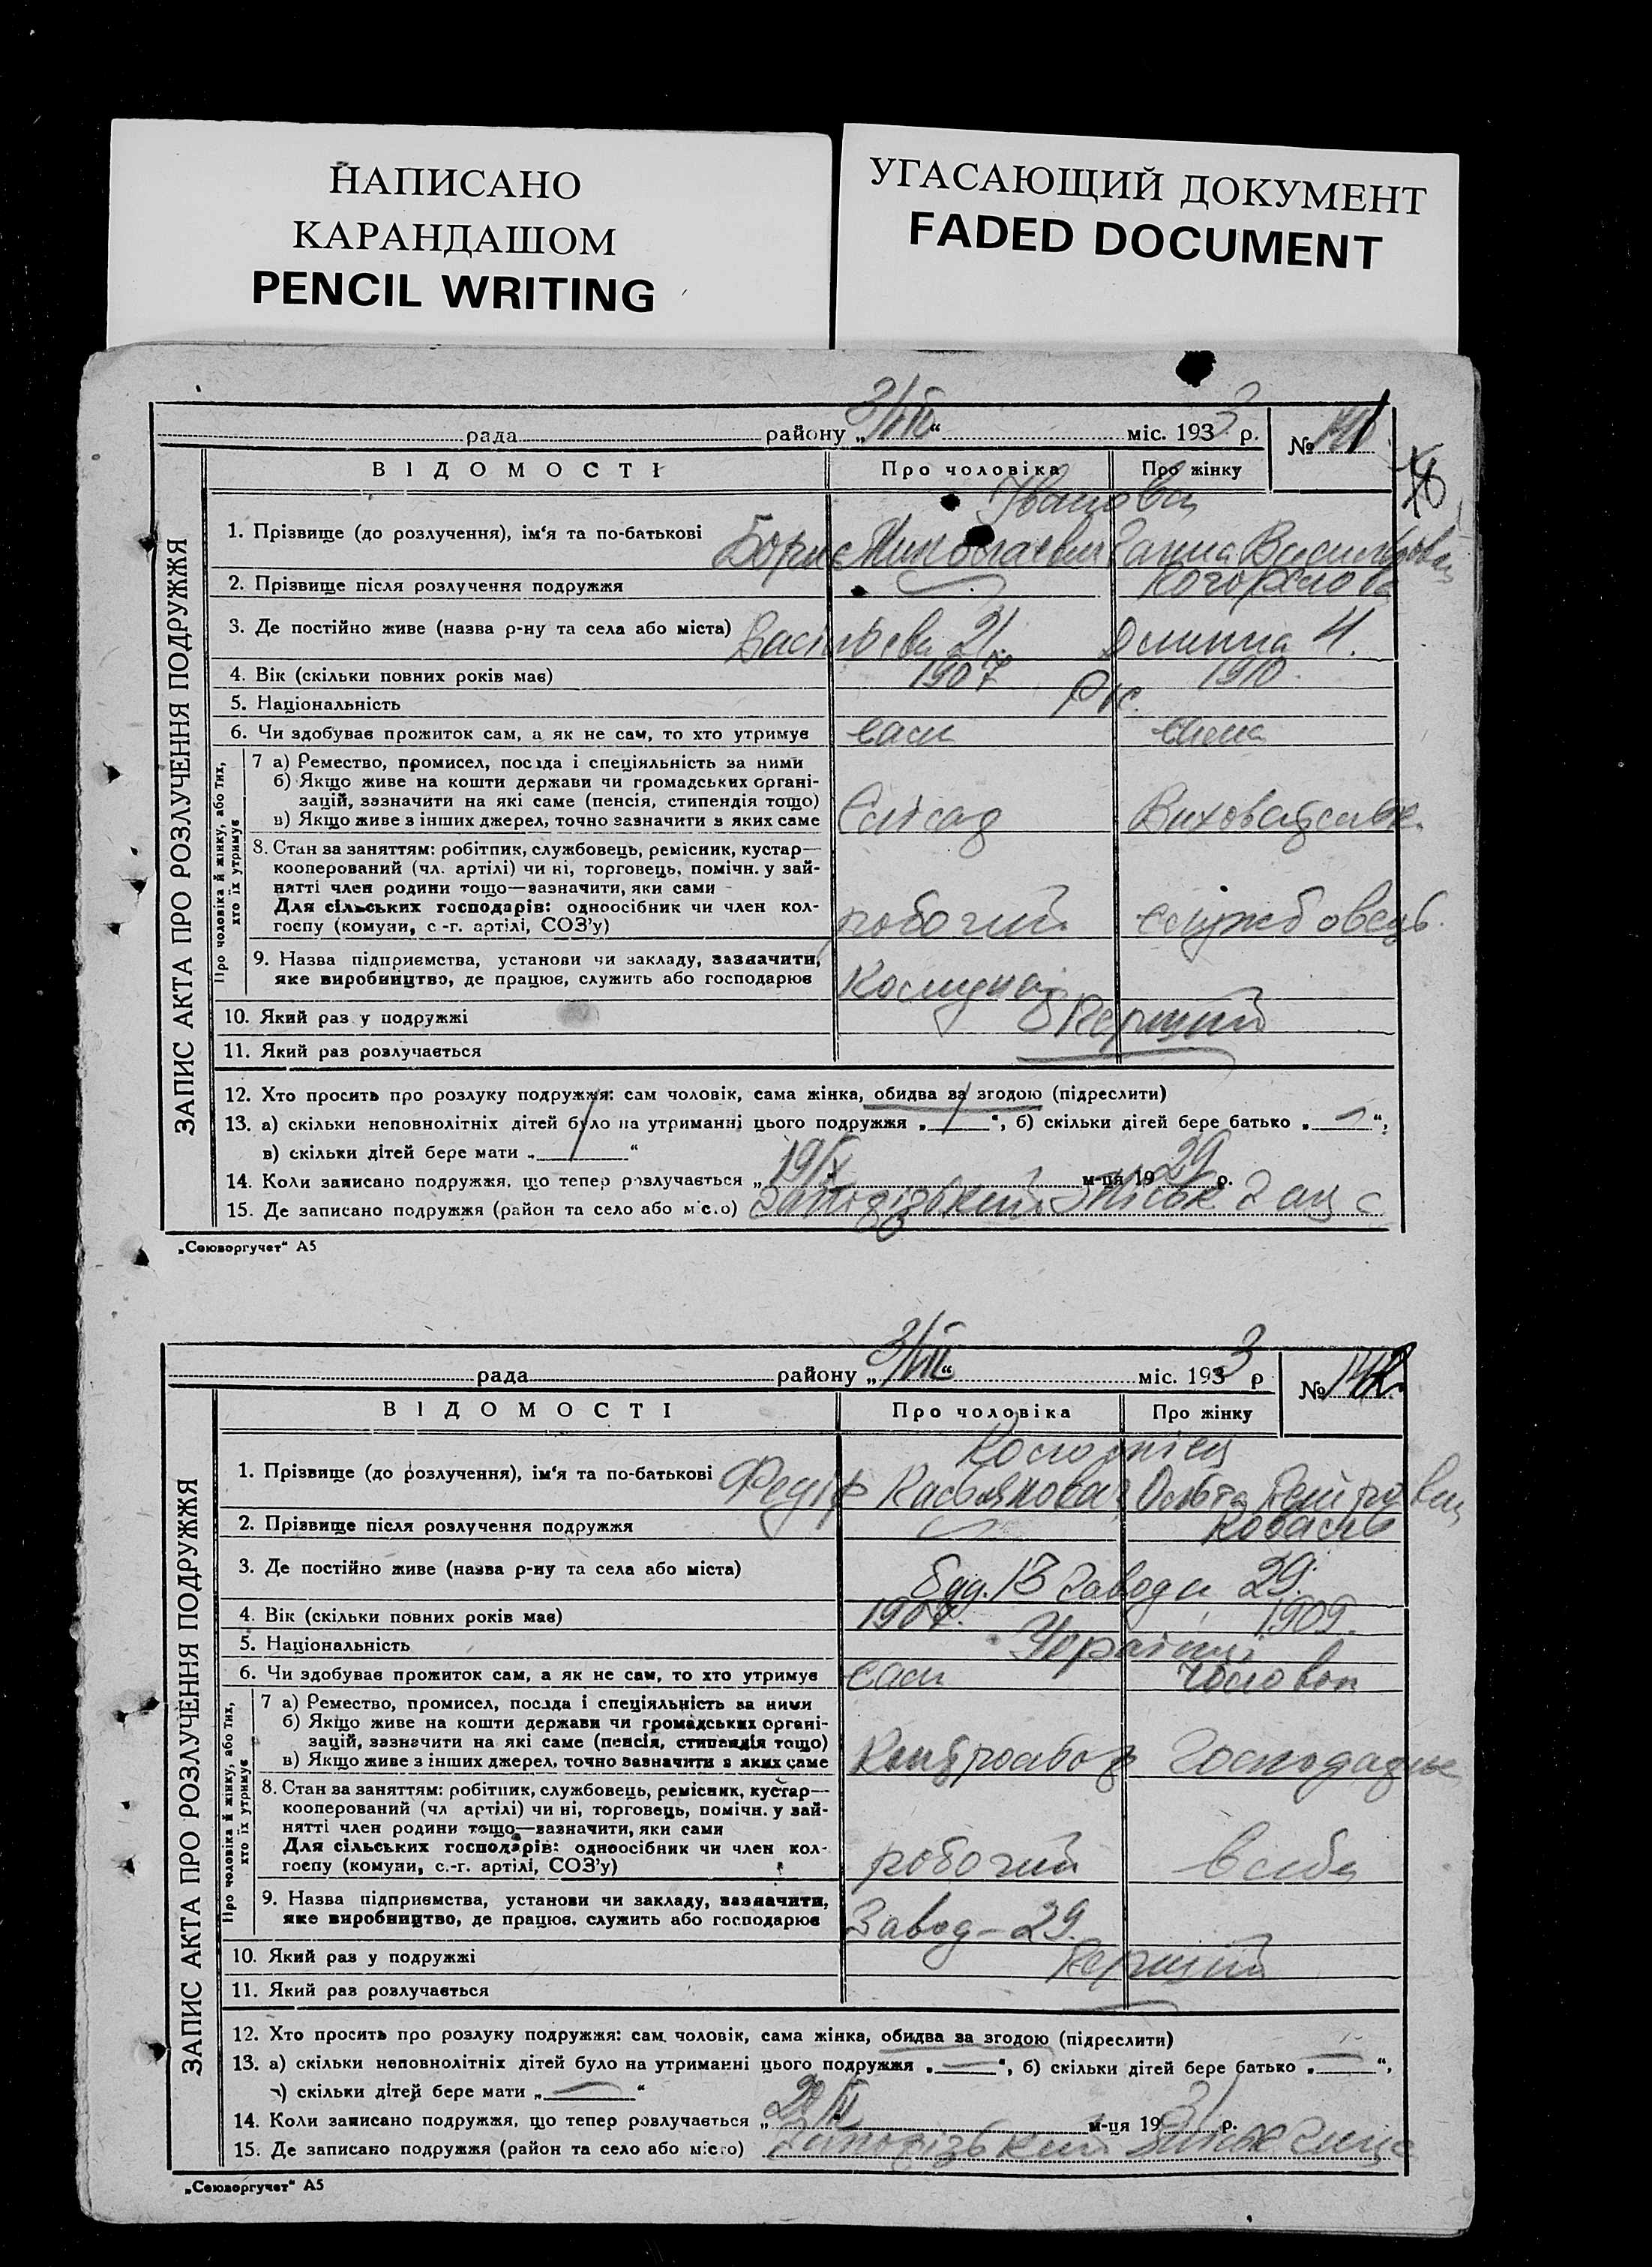 НАПИСАНО
КАРАНДАШОМ
PENCIL WRITING
УГАСАЮЩИЙ ДОКУМЕНТ
FADED DOCUMENT
ЗАПИС АКТА ПРО РОЗЛУЧЕННЯ ПОДРУЖЖЯ
рада району „3/VIII“ міс. 1933 р. № 141
ВІДОМОСТІ Про чоловіка Про жінку
Іванови
1. Прізвище (до розлучення), ім‘я та по-батькові Борис Миколаєвич Ганна Васильовна
2. Прізвище після розлучення подружжя
3. Де постійно живе (назва р-ну та села або міста) 21
4. Вік (скільки повних років має) 1907 1910.
5. Національність Рус.
6. Чи здобуває прожиток сам, а як не сам, то хто утримує сам сама
Про чоловіка й жінку, або тих, хто їх утримує
7 а) Ремество, промисел, посада і спеціяльність за ними
б) Якщо живе на кошти держави чи громадських органі-
зацій, зазначити на які саме (пенсія, стипендія тощо)
в) Якщо живе з інших джерел, точно зазначити з яких саме
8. Стан за заняттям: робітник, службовець, ремісник, кустар—
кооперований (чл. артілі) чи ні, торговець, помічн. у зай-
нятті член родини тощо—зазначити, яки сами
Для сільських господарів: одноосібник чи член кол-
госпу (комуни, с.-г. артілі, СОЗ’у) робочий службовець.
9. Назва підприємства, установи чи закладу, зазначити,
яке виробництво, де працює, служить або господарює
10. Який раз у подружжі Перший
11. Який раз розлучається
12. Хто просить про розлуку подружжя: сам чоловік, сама жінка, обидва за згодою (підреслити)
13. а) скільки неповнолітніх дітей було на утриманні цього подружжя „ “, б) скільки дітей бере батько „ “,
в) скільки дітей бере мати „ “
14. Коли записано подружжя, що тепер розлучається „19/X м-ця 1929 р.
15. Де записано подружжя (район та село або місто) Запорізький
„Союзоргучет“ А5
ЗАПИС АКТА ПРО РОЗЛУЧЕННЯ ПОДРУЖЖЯ
рада району „3/VIII“ міс. 1933 р № 142
ВІДОМОСТІ Про чоловіка Про жінку
1. Прізвище (до розлучення), ім‘я та по-батькові Федір Ольга
2. Прізвище після розлучення подружжя Коваль
3. Де постійно живе (назва р-ну та села або міста) буд. 13 завода 29.
4. Вік (скільки повних років має) 1909.
5. Національність Українці
6. Чи здобуває прожиток сам, а як не сам, то хто утримує сам чоловік
Про чоловіка й жінку, або тих, хто їх утримує
7 а) Ремество, промисел, посада і спеціяльність за ними
б) Якщо живе на кошти держави чи громадських органі-
зацій, зазначити на які саме (пенсія, стипендія тощо)
в) Якщо живе з інших джерел, точно зазначити з яких саме
8. Стан за заняттям: робітник, службовець, ремісник, кустар—
кооперований (чл артілі) чи ні, торговець, помічн. у зай-
нятті член родини тощо—зазначити, яки сами
Для сільських господарів: одноосібник чи член кол-
госпу (комуни, с.-г. артілі, СОЗ’у) робочий
9. Назва підприємства, установи чи закладу, зазначити,
яке виробництво, де працює, служить або господарює Завод-29.
10. Який раз у подружжі Перший
11. Який раз розлучається
12. Хто просить про розлуку подружжя: сам чоловік, сама жінка, обидва за згодою (підреслити)
13. а) скільки неповнолітніх дітей було на утриманні цього подружжя „—“, б) скільки дітей бере батько „—“,
в) скільки дітей бере мати „—“
14. Коли записано подружжя, що тепер розлучається „ м-ця 1931 р.
15. Де записано подружжя (район та село або місто) Запорізький
„Союзоргучет“ А5